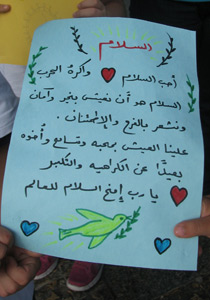 السلام
أحب السلام وأكره الحرب
السلام هو أن نعيش بخير وأمان
ونشعر بالفرح والإطمئنان.
علينا العيش بمحبه وتسامح وأخوه
بعيدًا عن الكراهيه والتكبر
يا رب إمنح السلام للعالم